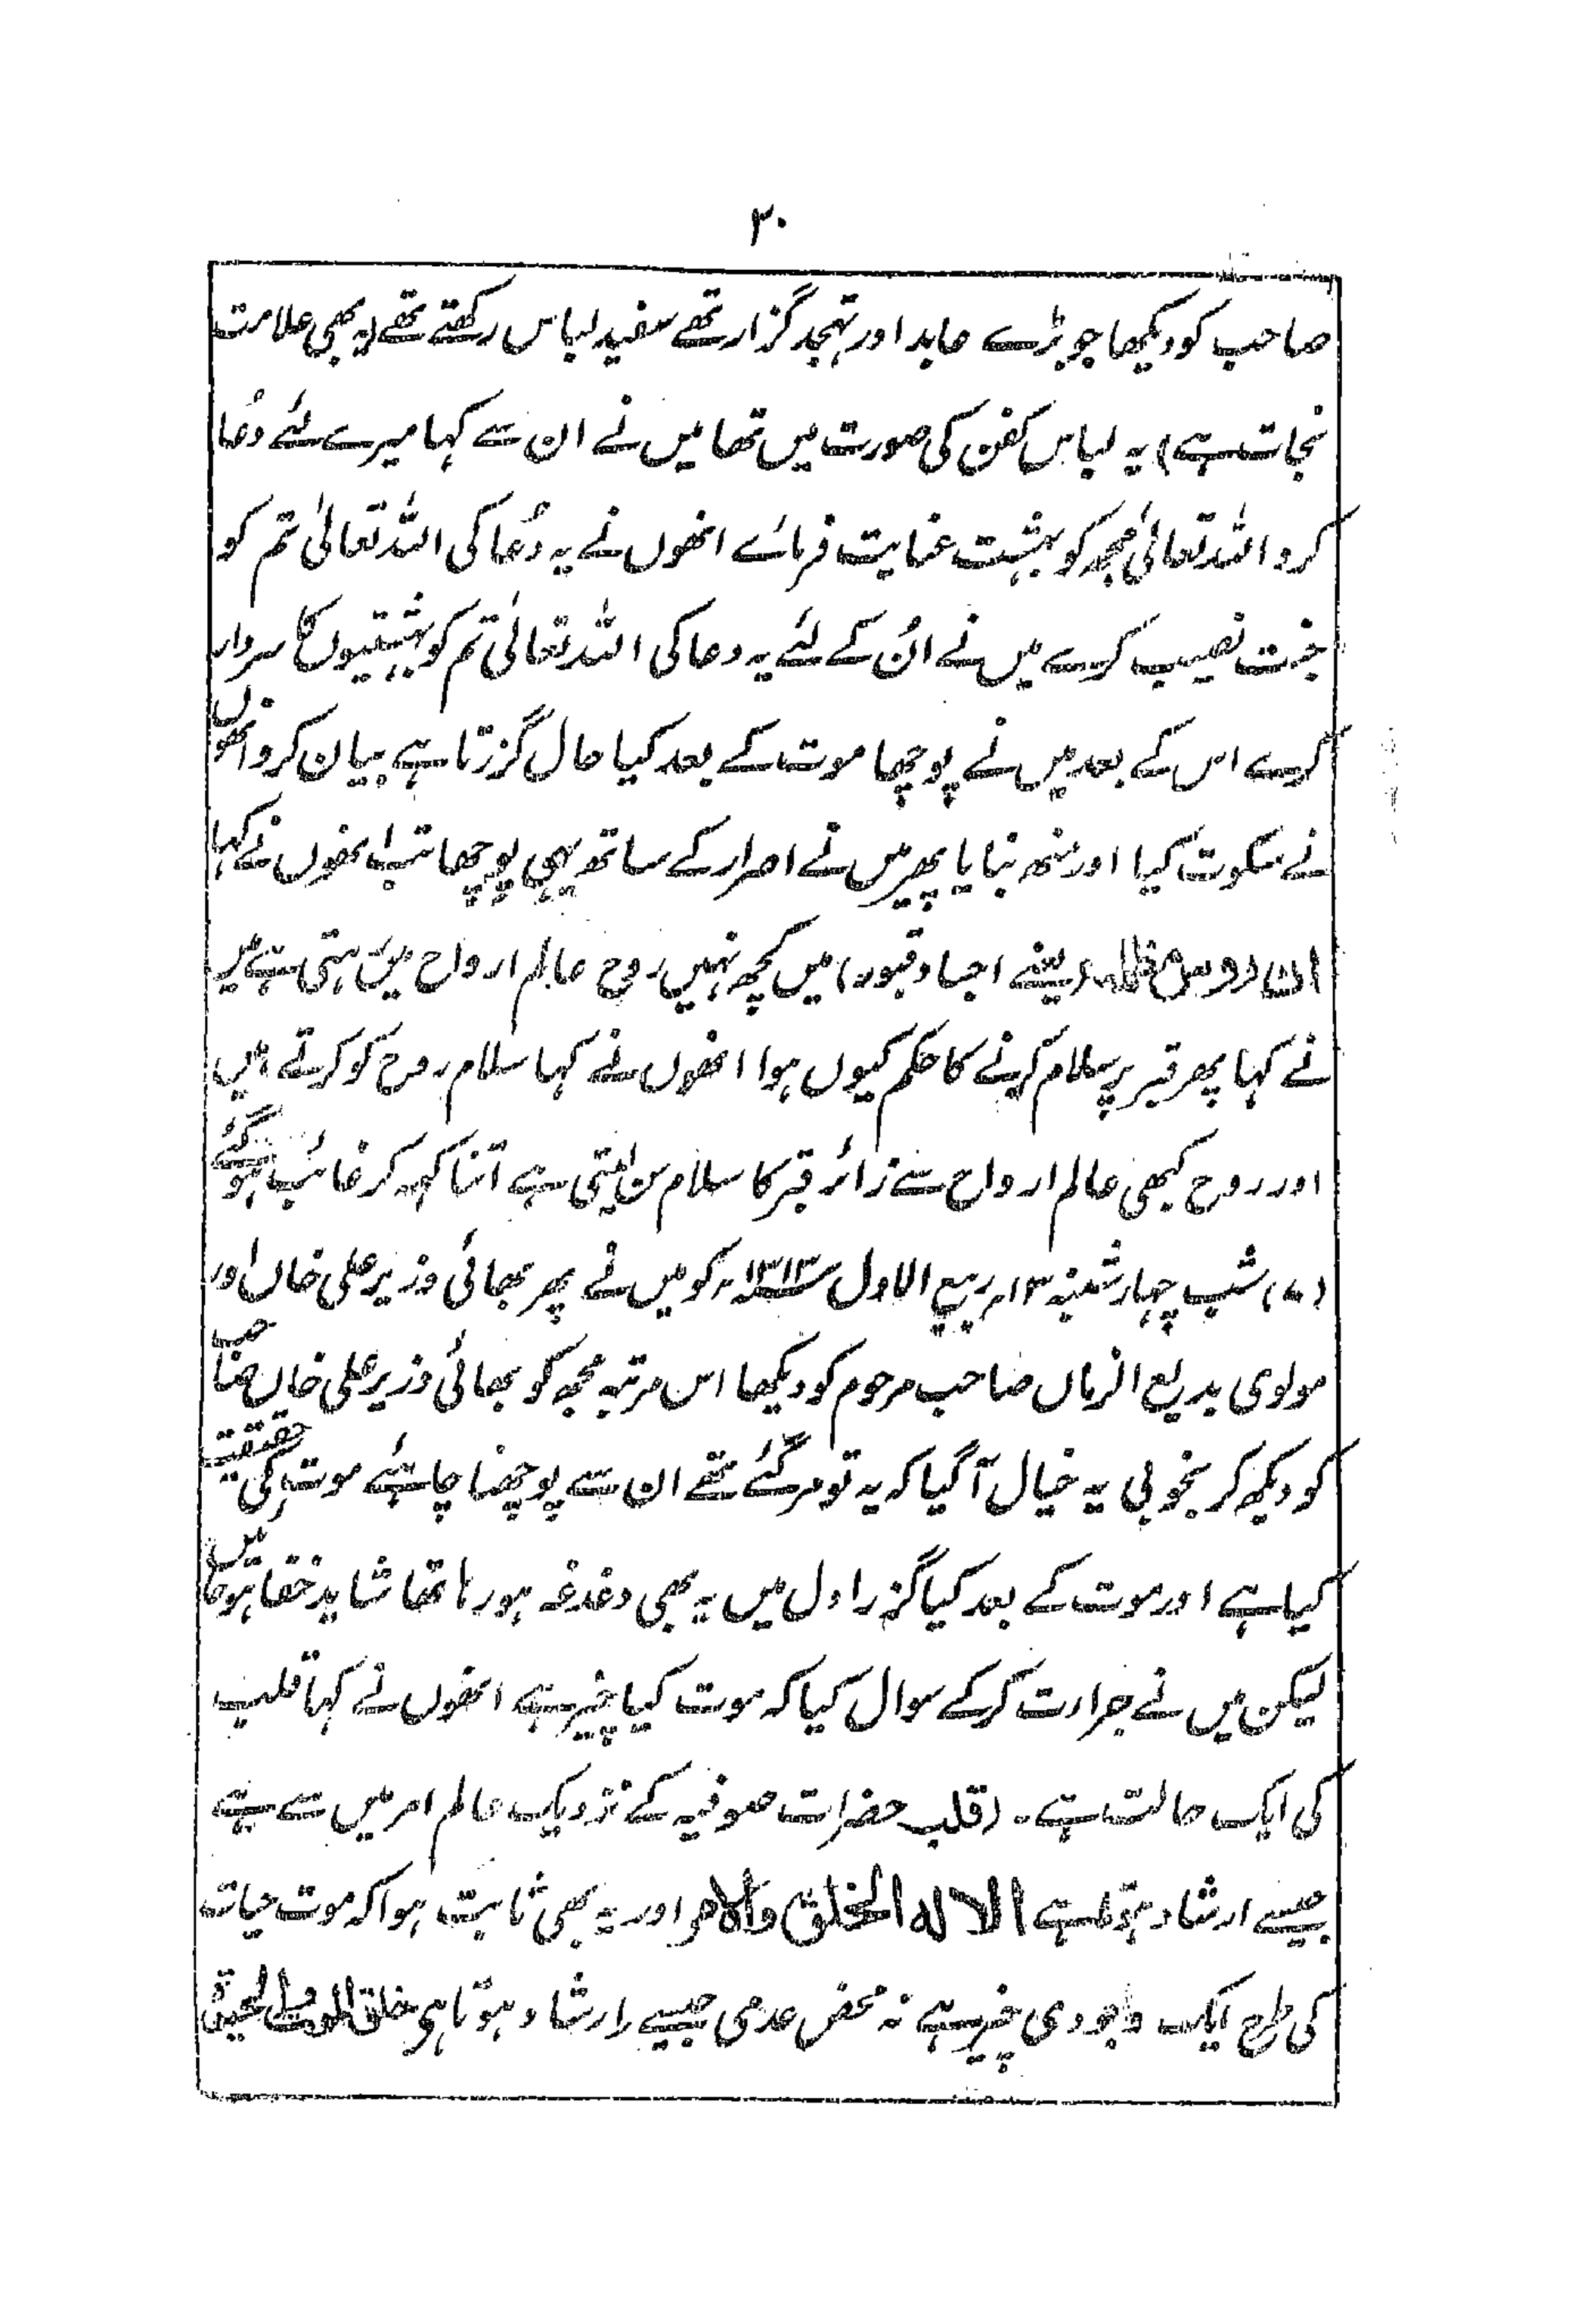 ۳۰
صاحب کو دیکھا جو بڑے عابد اور تہجد گزار تھے سفید لباس رکھتے تھے (یہ بھی علامت
نجات ہے) یہ لباس کفن کی صورت میں تھا میں نے ان سے کہا میرے لئے دُعا
کرو اللہ تعالیٰ مجھ کو بہشت عنایت فرمائے انھوں نے یہ دُعا کی اللہ تعالیٰ تم کو
جنت نصیب کرے میں نے اُن کے لئے یہ دعا کی اللہ تعالیٰ تم کو بہشتیوں کا سردار
کرے اس کے بعد میں نے پوچھا موت کے بعد کیا حال گزرتا ہے بیان کرو انھوں
نے سکوت کیا اور منھ بنایا پھر میں نے اصرار کے ساتھ یہی پوچھا تب انھوں نے کہا
ان (یعنے اجساد قبور) میں کچھ نہیں روح عالم ارواح میں رہتی ہے میں
نے کہا پھر قبر پر سلام کرنے کا حکم کیوں ہوا انھوں نے کہا سلام روح کو کرتے ہیں
اور روح کبھی عالم ارواح سے زائر قبر کا سلام سن لیتی ہے اتنا کہہ کر غائب ہوگئے
(۷) شب چہار شنبہ ۱۳ ربیع الاول ۱۳۱۳ھ کو میں نے پھر بھائی وزیر علی خاں اور
مولوی بدیع الزماں صاحب مرحوم کو دیکھا اس مرتبہ مجھ کو بھائی وزیر علی خاں صاحب
کو دیکھ کر بخوبی یہ خیال آگیا کہ یہ تو مر گئے تھے ان سے پوچھنا چاہئے موت کی حقیقت
کیا ہے اور موت کے بعد کیا گزرا دل میں یہ بھی دغدغہ ہو رہا تھا شاید خفا ہو جائیں
لیکن میں نے جرارت کرکے سوال کیا کہ موت کیا چیز ہے انھوں نے کہا قلب
کی ایک حالت ہے۔ (قلب حضرات صوفیہ کے نزدیک عالم امر میں سے ہے
جیسے ارشاد ہوتا ہے الا له الخلق والامر اور یہ بھی ثابت ہوا کہ موت حیات
کی طرح ایک وجودی چیز ہے نہ محض عدمی جیسے ارشاد ہوتا ہی خلق الموت والحیوة